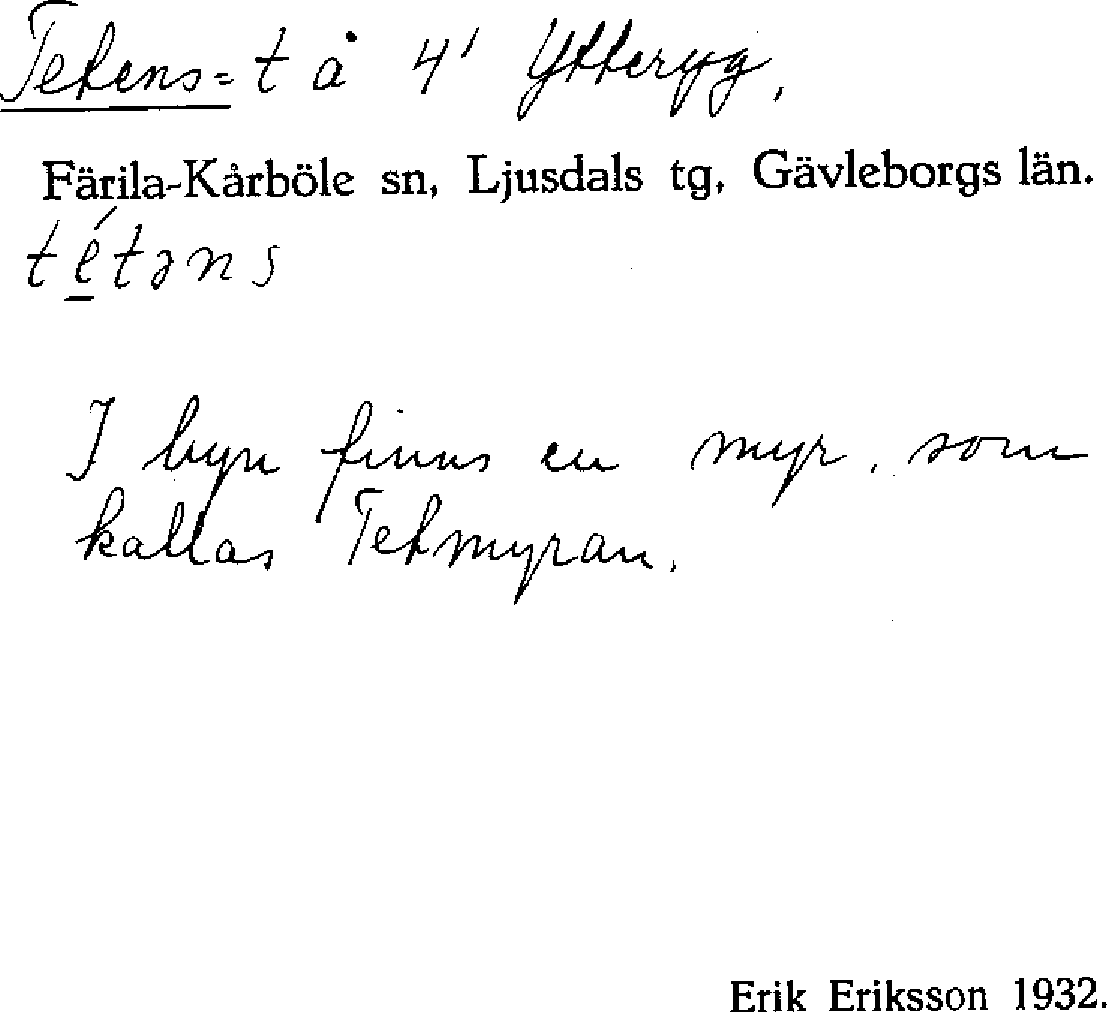 Tetens= t å 4' Ytterygg,
Färila-Kårböle sn, Ljusdals tg, Gävleborgs län.
tétəns
I byn finns en myr, som
kallas Tetmyran.
Erik Eriksson 1932.